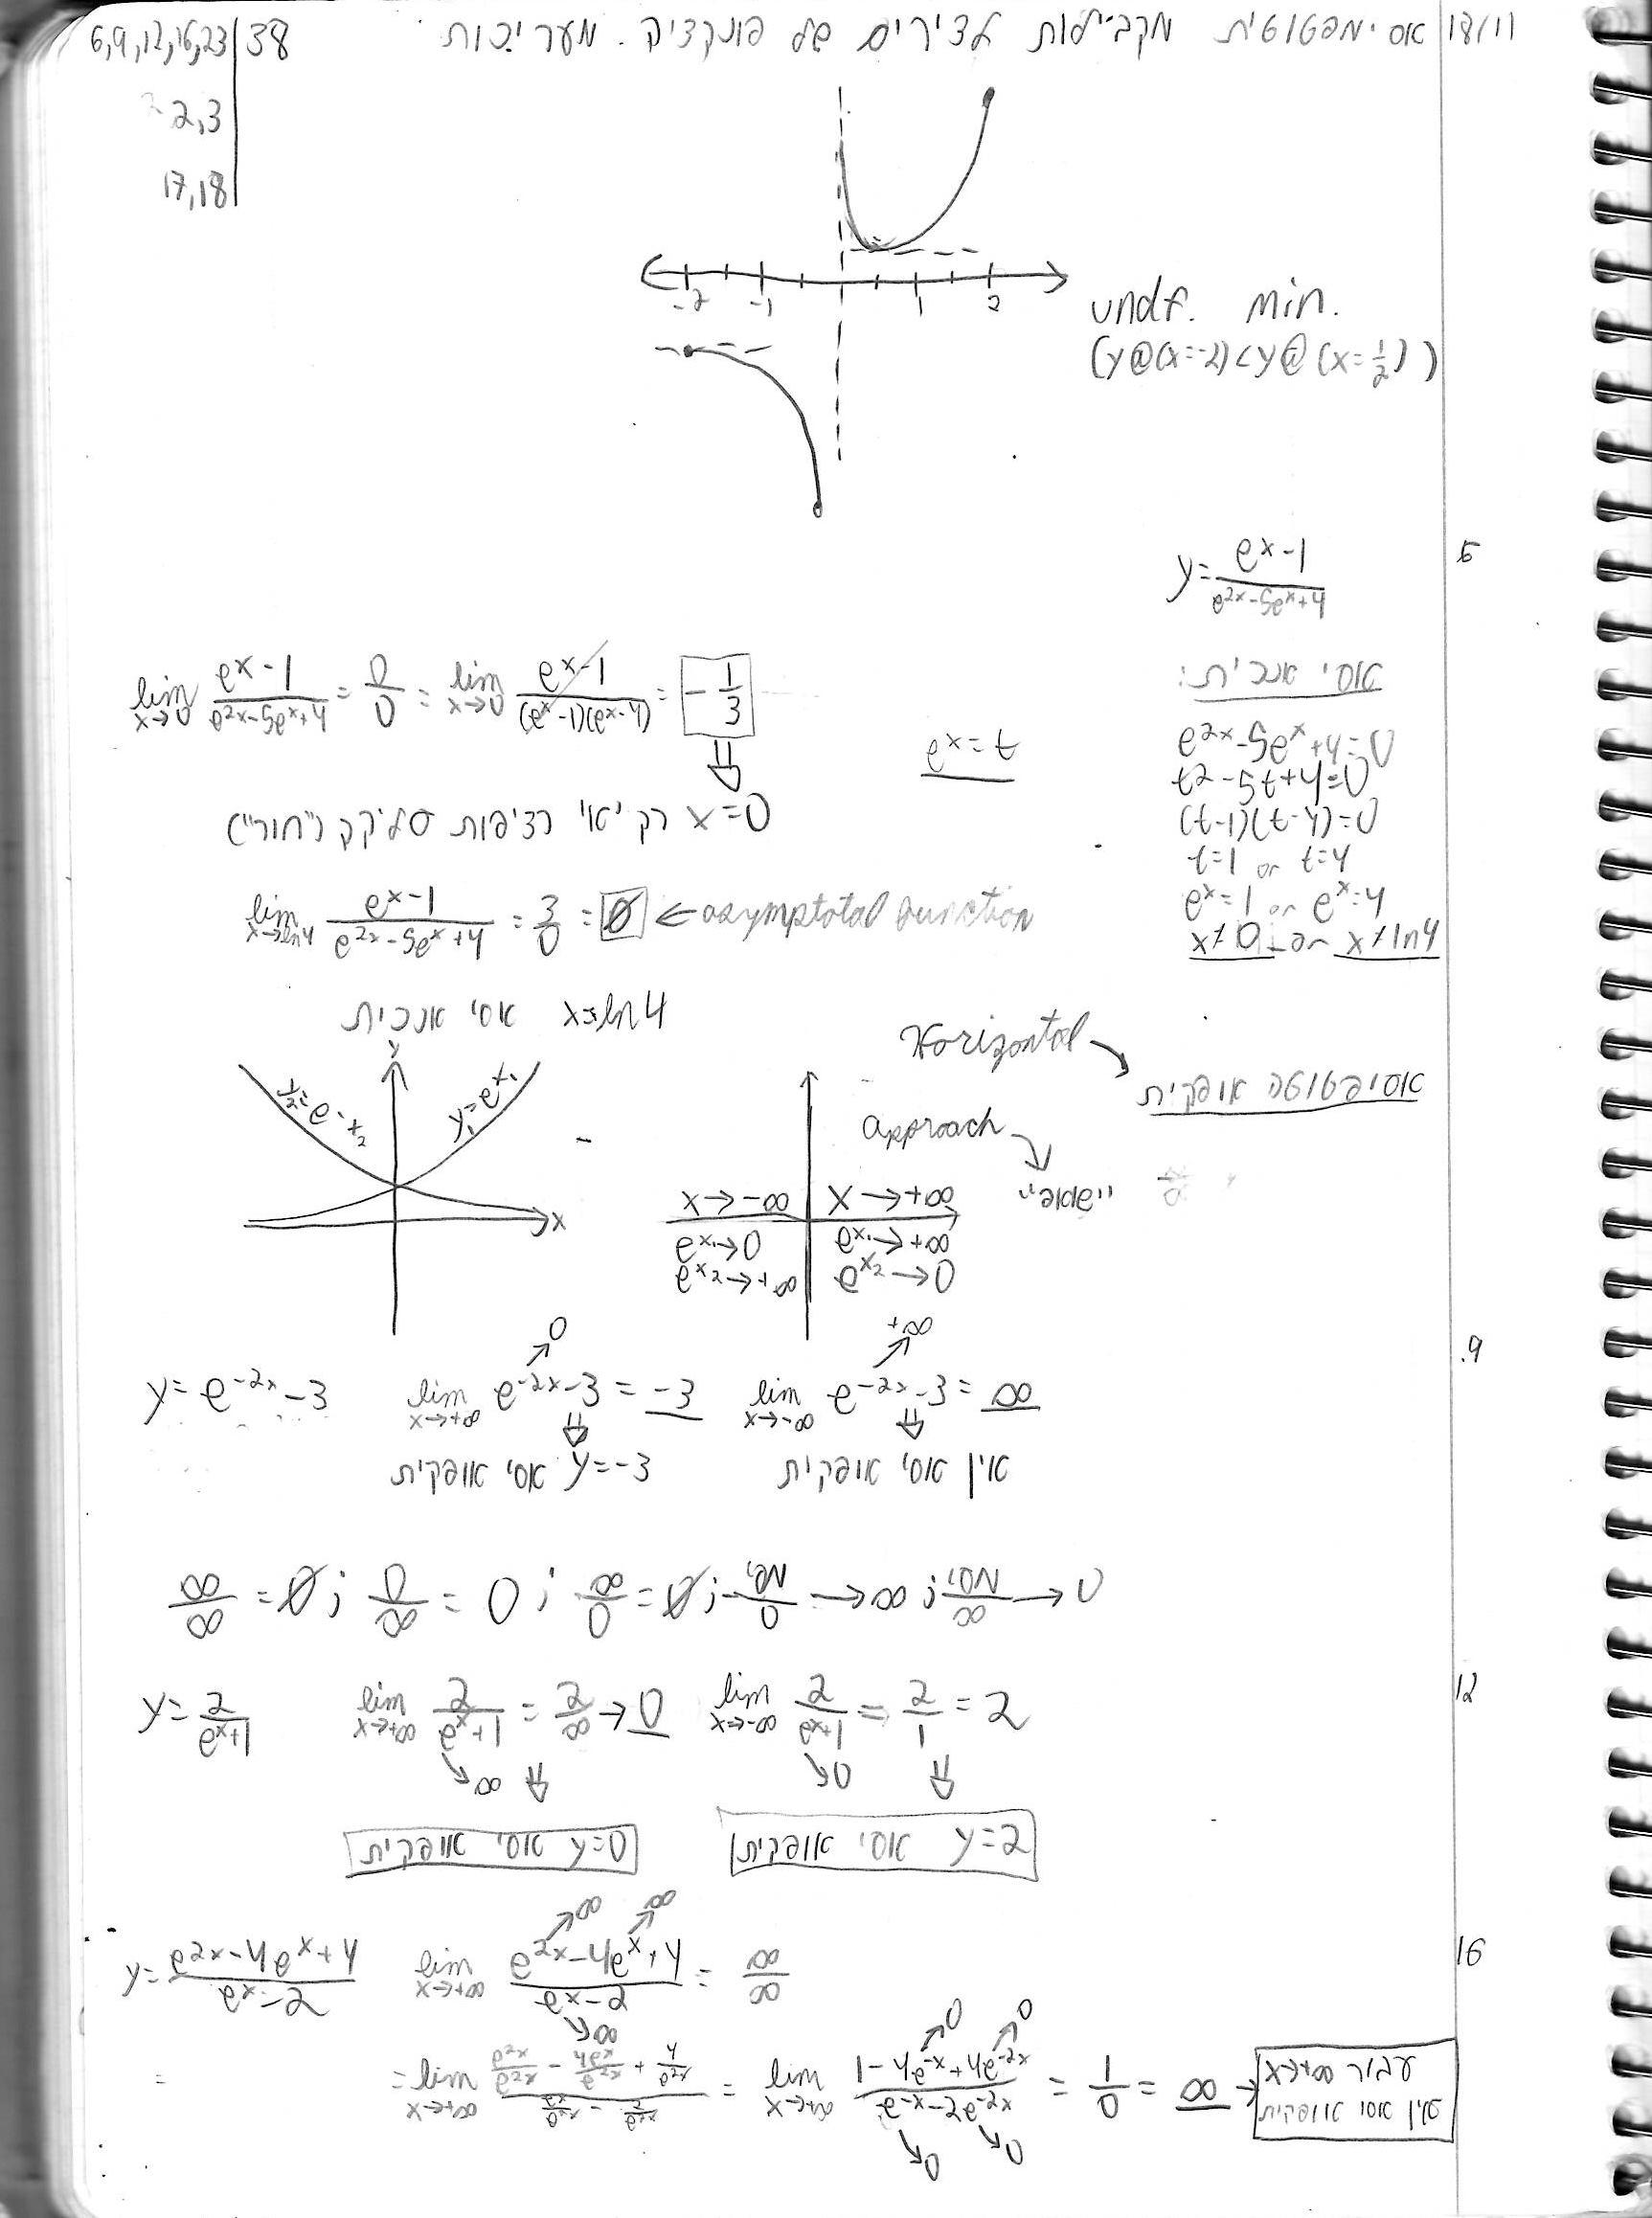 18/11 אסימפטוטית מקבילות לצירים של פונקציה מעריכית
38 | 6,9,12,16,23
2,3
17,18
-2 -1 1 2
undf. min.
(y@(x=-2)<y@(x=½))
5
y=(e^x-1)/(e^2x-5e^x+4)
אסי אנכית:
lim x→0 (e^x-1)/(e^2x-5e^x+4) = 0/0 = lim x→0 (e^x-1)/((e^x-1)(e^x-4)) = -1/3
e^x=t
e^2x-5e^x+4=0
t2-5t+4=0
(t-1)(t-4)=0
t=1 or t=4
e^x=1 or e^x=4
x≠0 or x≠ln4
x=0 רק אי רציפות סליקה ("חור")
lim x→ln4 (e^x-1)/(e^2x-5e^x+4) = 3/0 = ∅ ← asymptotal function
x=ln4 אסי אנכית
Horizontal
אסימפטוטה אופקית
y
y₂=e^-x₂ y₁=e^x₁
x
approach
"שואפי"
x→-∞ x→+∞
e^x₁→0 e^x₁→+∞
e^x₂→+∞ e^x₂→0
9.
0 +∞
y=e^-2x-3 lim x→+∞ e^-2x-3 = -3 lim x→-∞ e^-2x-3 = ∞
y=-3 אסי אופקית אין אסי אופקית
∞/∞ = ∅; 0/∞ = 0; ∞/0 = ∅; מס'/0 → ∞; מס'/∞ → 0
12
y=2/(e^x+1) lim x→+∞ 2/(e^x+1) = 2/∞ → 0 lim x→-∞ 2/(e^x+1) = 2/1 = 2
∞ 0
y=0 אסי אופקית y=2 אסי אופקית
16
∞ ∞
y=(e^2x-4e^x+4)/(e^x-2) lim x→+∞ (e^2x-4e^x+4)/(e^x-2) = ∞/∞
∞
0 0
= lim x→+∞ (e^2x/e^2x - 4e^x/e^2x + 4/e^2x)/(e^x/e^2x - 2/e^2x) = lim x→+∞ (1-4e^-x+4e^-2x)/(e^-x-2e^-2x) = 1/0 = ∞ →
0 0
עבור x→+∞
אין אסי אופקית